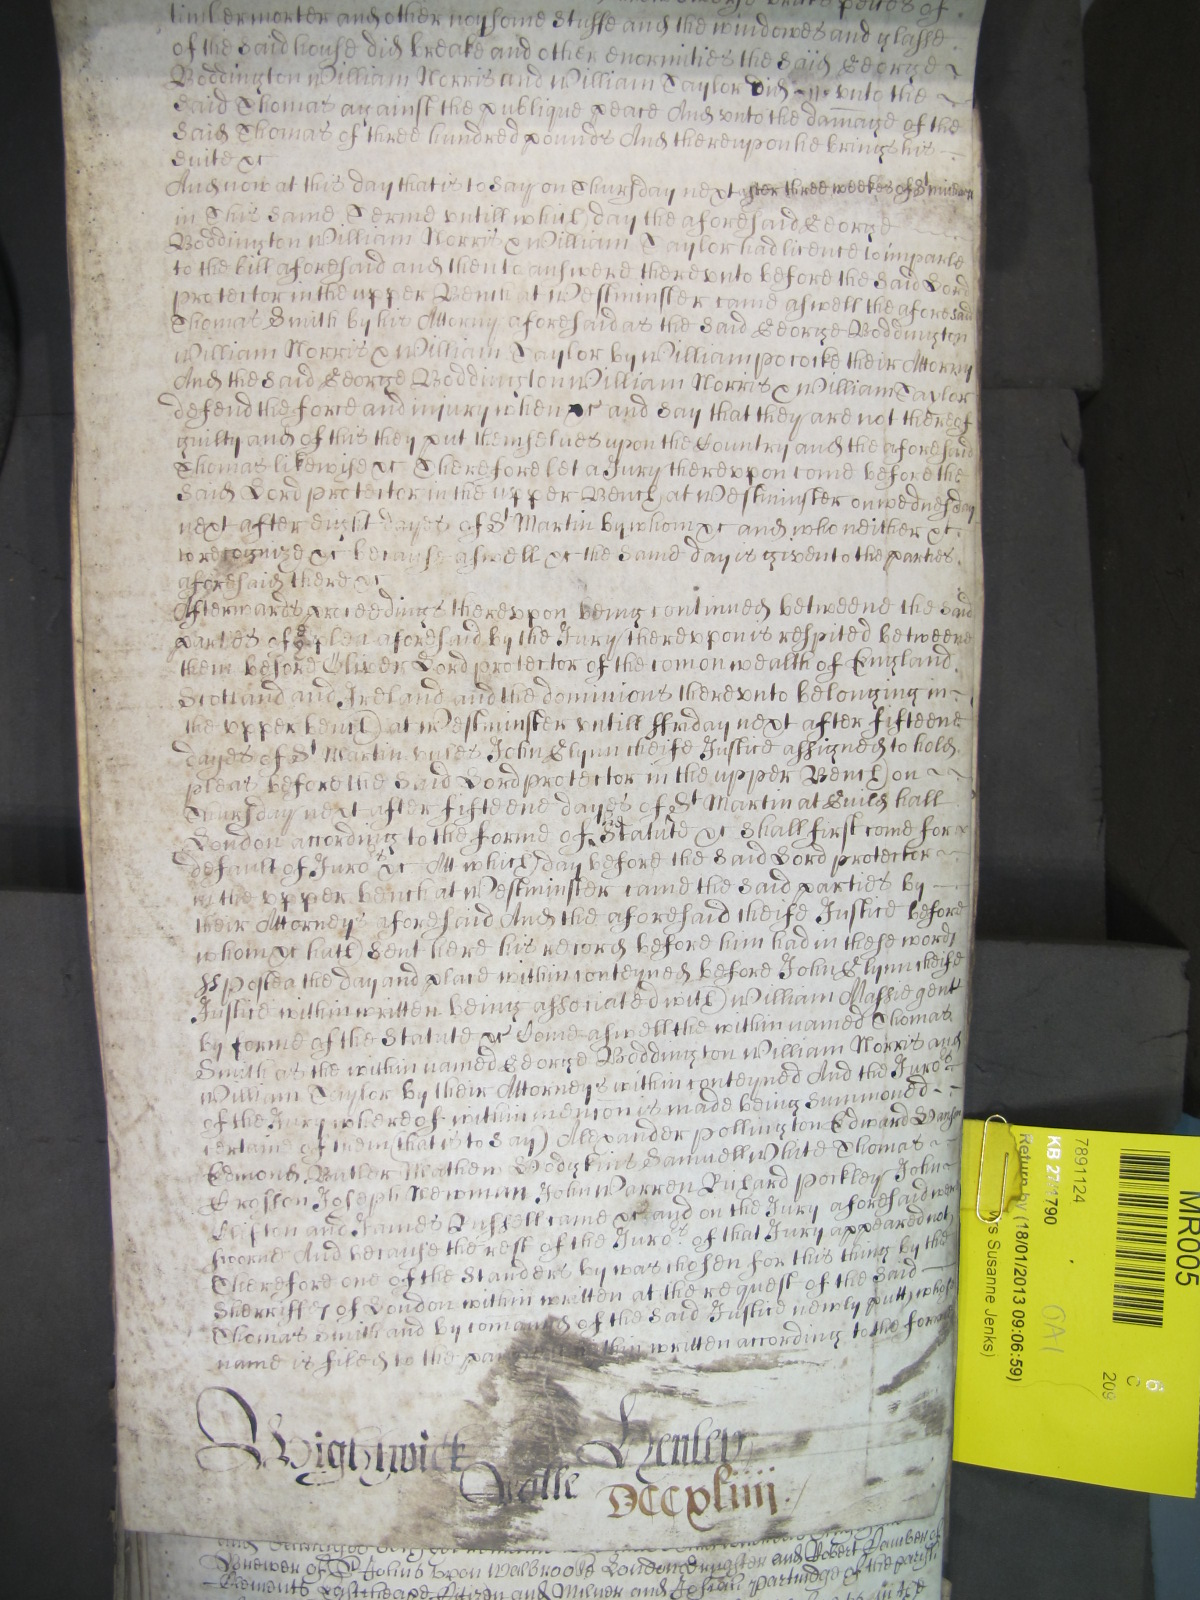 timber morter and other noysome stuffe and the windowes and glasse
of the said house did breake and other enormities the said George
Boddington William Norris and William Taylor did unto the
said Thomas against the publique peace And unto the damage of the
said Thomas of three hundred pounds And thereupon he brings his
suite &c
And now at this day that is to say on Thursday next after three weekes of St
in this same Terme untill which day the aforesaid George
Boddington William Norris & William Taylor had licence to imparle
to the bill aforesaid and then to answere thereunto before the said Lord
protector in the upper Bench at Westminster came aswell the aforesaid
Thomas Smith by his Attorny aforesaid as the said George Boddington
William Norris & William Taylor by William pococke their Attorny
And the said George Boddington William Norris & William Taylor
defend the force and injury when &c and say that they are not thereof
guilty and of this they put themselves upon the Country and the aforesaid
Thomas likewise &c Therefore let a Jury thereupon come before the
said Lord protector in the upper Bench at Westminster on wednesday
next after eight dayes of St Martin by whom &c and who neither &c
to recognize &c because aswell &c the same day is given to the parties
aforesaid there &c
Afterwards proceedings thereupon being continued betweene the said
parties of plea aforesaid by the Jury thereupon is respited betweene
them before Oliver Lord protector of the comon wealth of England
Scotland and Ireland and the dominions thereunto belonging in
the upper bench at Westminster untill ffriday next after fifteene
dayes of St Martin unles John Glynn cheife Justice assigned to hold
pleas before the said Lord protector in the upper Bench on
Thursday next after fifteene dayes of St Martin at Guild hall
London according to the forme of the Statute &c shall first come for
default of Jurors &c Att which day before the said Lord protector
in the upper bench at Westminster came the said parties by
their Attorneys aforesaid And the aforesaid cheife Justice before
whom &c hath sent here his record before him had in these words
ss postea the day and place within conteyned before John Glynn cheife
Justice within written being associated with William Massie gent
by forme of the Statute &c Come aswell the within named Thomas
Smith as the within named George Boddington William Norris and
William Taylor by their Attorneys within conteyned And the Jurors
of the Jury whereof within mencion is made being summoned
certaine of them (that is to say) Alexander pollington Edward
Edmond Butler Mathew Hodgkins Samuell White Thomas
Crosson Joseph Newman John Warren Richard pockley John
Clifton and James Russell came &c and on the Jury aforesaid were
sworne And because the rest of the Jurors of that Jury appeared not
Therefore one of the standers by was chosen for this thing by the
Sherriffes of London within written at the request of the said
Thomas Smith and by comand of the said Justice newly putt whose
name is filed to the within written according to the forme
Wightwick Henley
Walle DCCxliiij
Brewer of St Johns upon Walbrooke London and Robert
Clements Eastcheape Citizen and and Josias partridge of the parish
MR005
7891124
KB 27/1790
Return by (18/01/2013 09:06:59)
Ms Susanne Jenks)
CA1
6
C
209